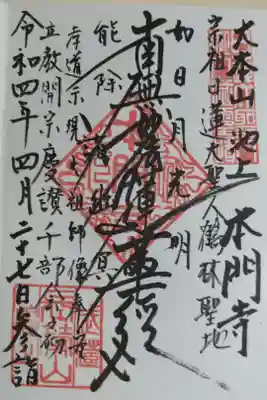 大本山池上 本門寺
宗祖日蓮大聖人鶴林聖地
如日月光明
南無妙法蓮華経
能除諸幽冥
祖師像奉安
立教開宗慶讃千部
令和四年四月二十七日参詣